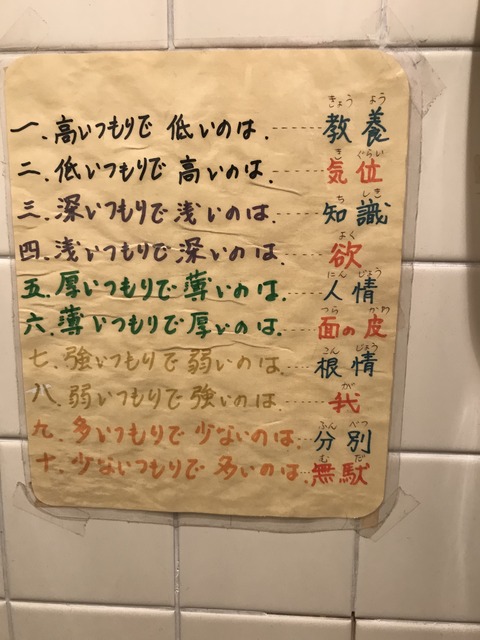 一．高いつもりで 低いのは．------教養
きょう よう
二．低いつもりで 高いのは．------気位
き ぐらい
三．深いつもりで浅いのは．------知識
ち しき
四．浅いつもりで深いのは．------欲
よく
五．厚いつもりで薄いのは．------人情
にん じょう
六．薄いつもりで厚いのは．------面の皮
つら かわ
七．強いつもりで弱いのは．------根情
こん じょう
八．弱いつもりで強いのは．------我
が
九．多いつもりで少ないのは．------分別
ふん べつ
十．少ないつもりで多いのは．------無駄
む だ